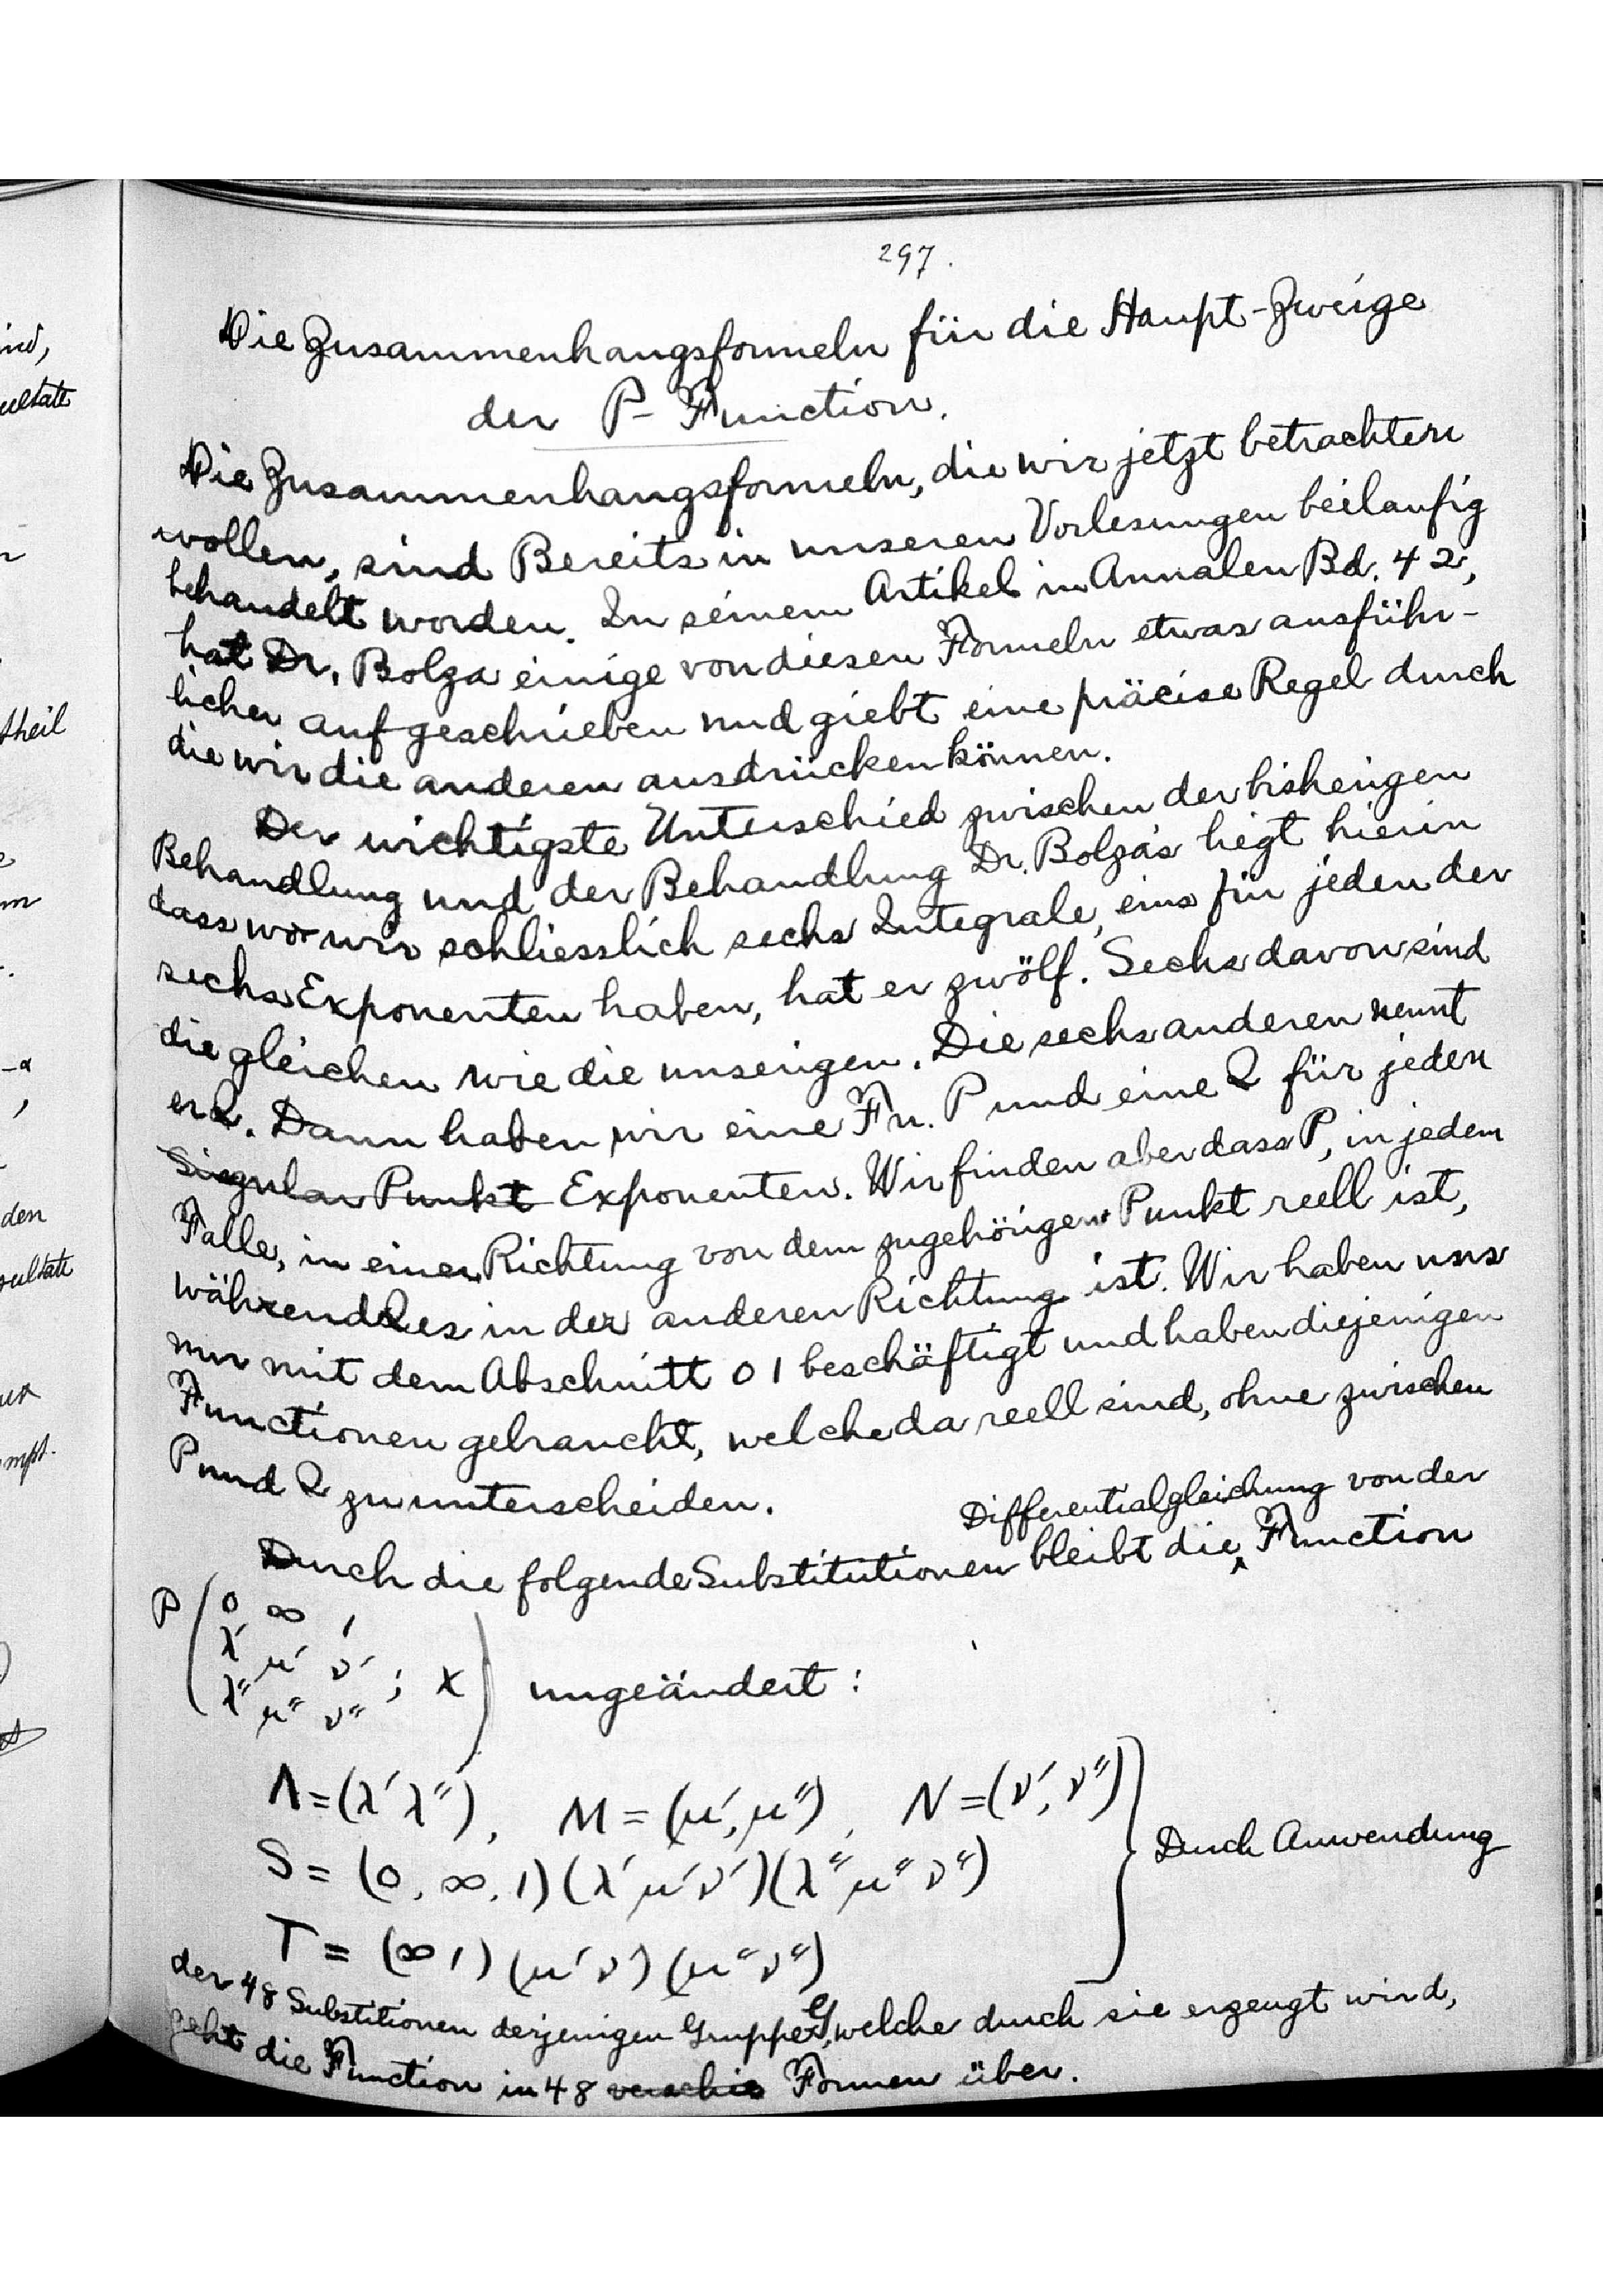 297.
Die Zusammenhangsformeln für die Haupt-Zweige
der P-Function.
Die Zusammenhangsformeln, die wir jetzt betrachten
wollen, sind Bereits in unseren Vorlesungen beilaufig
behandelt worden. In seinem Artikel in Annalen Bd. 42,
hat Dr. Bolza einige von diesen Formeln etwas ausführ-
licher aufgeschrieben und giebt eine präcise Regel durch
die wir die anderen ausdrücken können.
Der wichtigste Unterschied zwischen der bisherigen
Behandlung und der Behandlung Dr. Bolza's liegt hierin
dass wo wir schliesslich sechs Integrale, eins für jeden der
sechs Exponenten haben, hat er zwölf. Sechs davon sind
die gleichen wie die unserigen. Die sechs anderen nennt
er Q. Dann haben wir eine Fn. P und eine Q für jeden
Singular Punkt Exponenten. Wir finden aber dass P, in jedem
Falle, in einer Richtung von dem zugehörigen Punkt reell ist,
während Q es in der anderen Richtung ist. Wir haben uns
nur mit dem Abschnitt 0 1 beschäftigt und haben diejenigen
Functionen gebraucht, welche da reell sind, ohne zwischen
P und Q zu unterscheiden.
Differentialgleichung von der
Durch die folgende Substitutionen bleibt die ‸ Function
P ( 0 ∞ 1
λ' μ' ν' ; x
λ'' μ'' ν'' ) ungeändert:
Λ = (λ' λ''), M = (μ', μ''), N = (ν', ν'')
S = (0, ∞, 1) (λ' μ' ν') (λ'' μ'' ν'') } Durch Anwendung
T = (∞ 1) (μ' ν') (μ'' ν'')
der 48 Substitionen derjenigen Gruppe G, welche durch sie erzeugt wird,
geht die Function in 48 verschie Formen über.
ind,
sultate
n
theil
e
m
-α
,
den
sultate